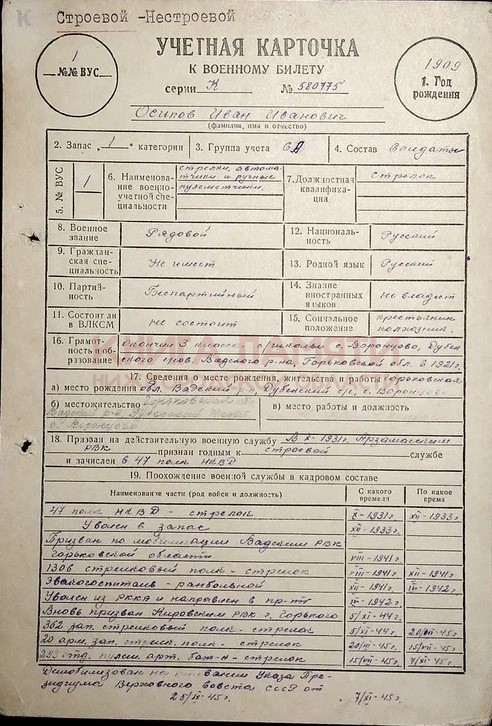 Строевой - Нестроевой
УЧЕТНАЯ КАРТОЧКА
К ВОЕННОМУ БИЛЕТУ
серии К № 580775
1
№№ ВУС
1909
1. Год
рождения
Осипов Иван Иванович
(фамилия, имя и отчество)
2. Запас 1 категории
3. Группа учета СА
4. Состав Солдаты
5. № ВУС 1
6. Наименование военно-учетной специальности
стрелки, автоматчики и ручные
пулеметчики.
7. Должностная квалификация
стрелок
8. Военное звание
Рядовой
12. Национальность
Русский
9. Гражданская специальность
Не имеет
13. Родной язык
Русский
10. Партийность
Беспартийный
14. Знание иностранных языков
не владеет
11. Состоял ли в ВЛКСМ
не состоит
15. Социальное положение
16. Грамотность и образование
Окончил 3 класса с/школы с. Воронцово,
Вадского р-на, Горьковской обл. в 1921 г.
17. Сведения о месте рождения, жительства и работы
Горьковская
а) место рождения обл. Вадский с. Воронцово
б) местожительство
в) место работы и должность
18. Призван на действительную военную службу В X-1931г. Арзамасским
РВК признан годным к строевой службе
и зачислен в 47 полк НКВД
19. Прохождение военной службы в кадровом составе
Наименование части (род войск и должность)
С какого времени
По какое время
47 полк НКВД - стрелок X-1931г. XII-1933
Уволен в запас XII-1933г.
Призван по мобилизации Вадским РВК
Горьковской области VIII-1941г.
1306 стрелковый полк - стрелок VIII-1941г. XII-1941г.
Эвакогоспиталь - ранбольной XII-1941г. IV-1942г.
Уволен из РККА и направлен в IV-1942г.
Вновь призван Кировским РВК г. Горького 5/XI-44г.
362 зап. стрелковый полк - стрелок 5/XI-44г.
20 арм. зап. стрелк. полк - стрелок
293 отд. пулем. арт. бат-н - стрелок
Демобилизован на основании Указа Президиума Верховного Совета СССР от
25/IX-45г. 7/XI-45г.